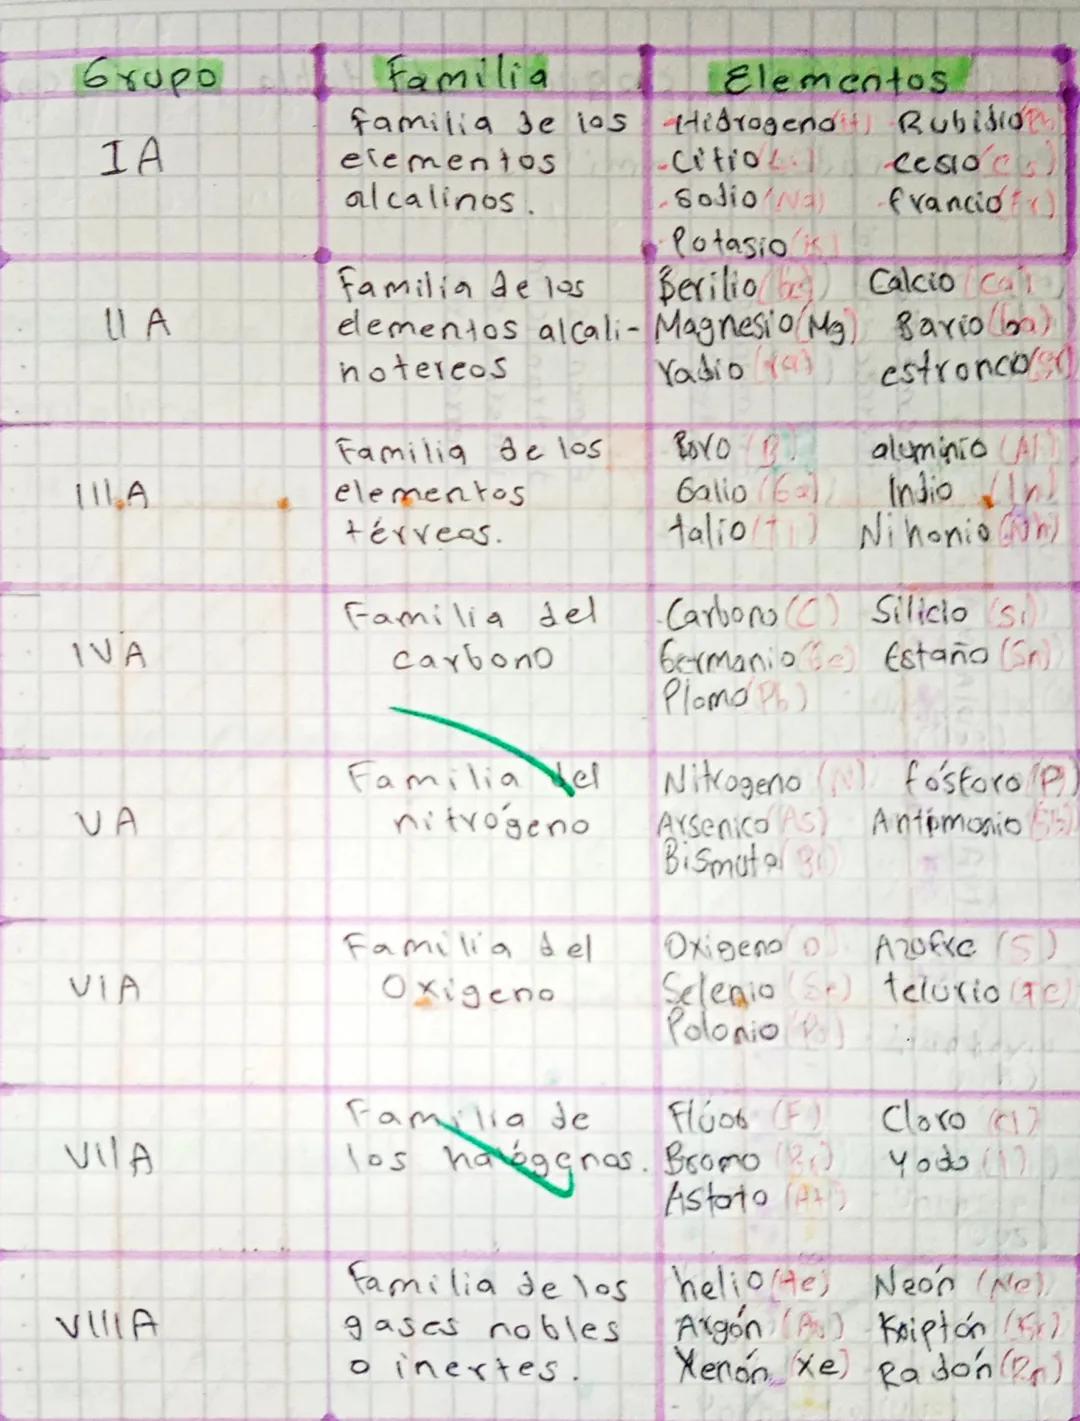 Grupo Familia Elementos
IA
familia de los
elementos
alcalinos.
-Hidrogeno(H) -Rubidio(Rb)
-Citio(Li) -cesio(cs)
-Sodio(Na) -francio(Fr)
-Potasio(K)
II A
Familia de los
elementos alcali-
notereos
Berilio(be) Calcio(ca)
Magnesio(Mg) Bario(ba)
radio(ra) estronco(sr)
III.A
Familia de los
elementos
térreas.
Boro(B) aluminio(Al)
Galio(Ga) Indio(In)
talio(Tl) Nihonio(Nh)
IVA
Familia del
carbono
Carbono(C) Silicio(si)
Germanio(Ge) Estaño(Sn)
Plomo(Pb)
VA
Familia del
nitrógeno
Nitrogeno(N) fósforo(P)
Arsenico(As) Antimonio(Sb)
Bismuto(Bi)
VIA
Familia del
Oxigeno
Oxigeno(O) Azofre(S)
Selenio(Se) telurio(Te)
Polonio(Po)
VIIA
Familia de
los halógenos.
(F) Cloro(Cl)
Bromo(Br) Yodo(I)
Astato(At)
VIIIA
Familia de los
gases nobles
o inertes.
helio(He) Neón(Ne)
Argón(Ar) Kriptón(Kr)
Xenón(Xe) Radón(Rn)